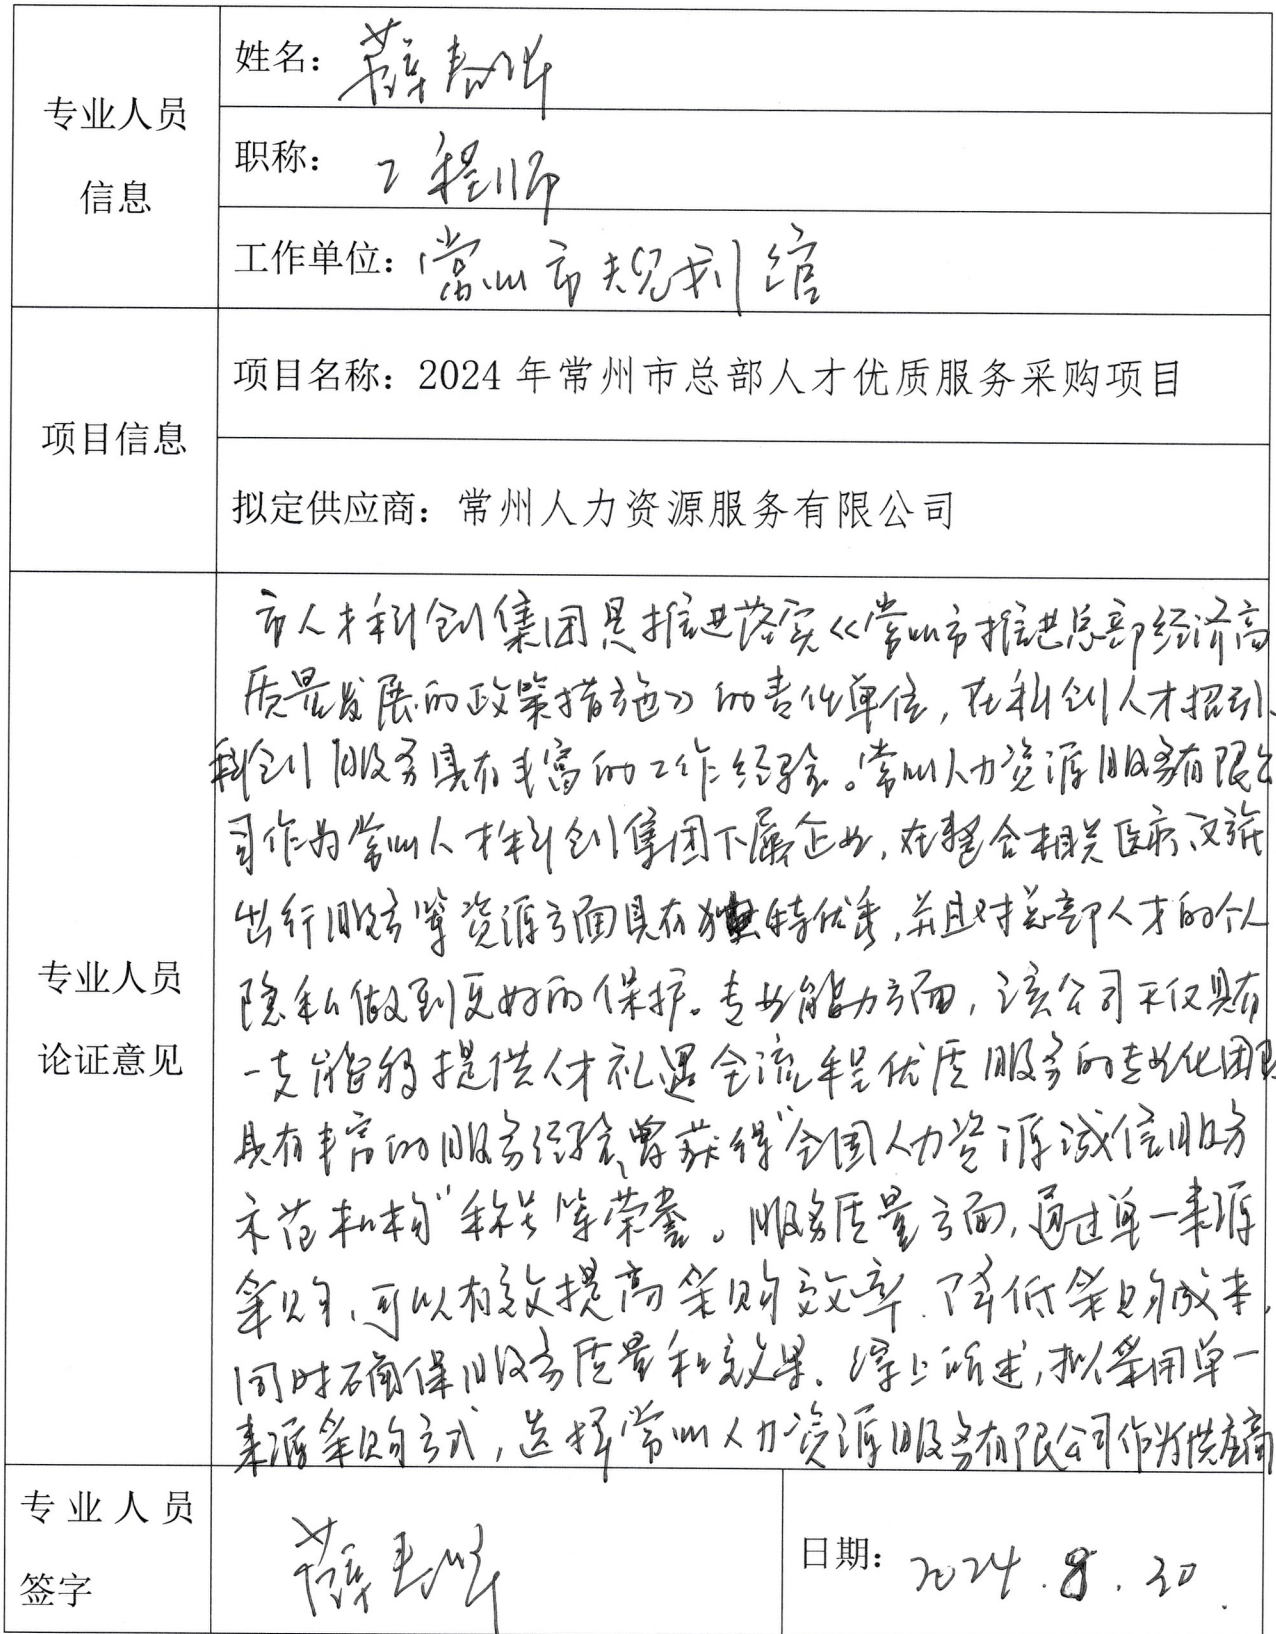 专业人员
信息
姓名：薛春
职称：工程师
工作单位：常州市规划馆
项目信息
项目名称：2024年常州市总部人才优质服务采购项目
拟定供应商：常州人力资源服务有限公司
专业人员
论证意见
市人才科创集团是推进落实《常州市推进总部经济高
质量发展的政策措施》的责任单位，在科创人才招引、
科创服务具有丰富的工作经验。常州人力资源服务有限公
司作为常州人才科创集团下属企业，在整合相关医疗、文旅
出行服务等资源方面具有独特优秀，并且对总部人才的个人
隐私做到更好的保护。专业能力方面，该公司不仅具有
一支能够提供人才礼遇全流程优质服务的专业化团队
具有丰富的服务经验，曾获得“全国人力资源诚信服务
示范机构”称号等荣誉。服务质量方面，通过单一来源
采购，可以有效提高采购效率、降低采购成本，
同时确保服务质量和效果。综上所述，拟采用单一
来源采购方式，选择常州人力资源服务有限公司作为供应商
专业人员
签字
薛春
日期：2024.8.30.